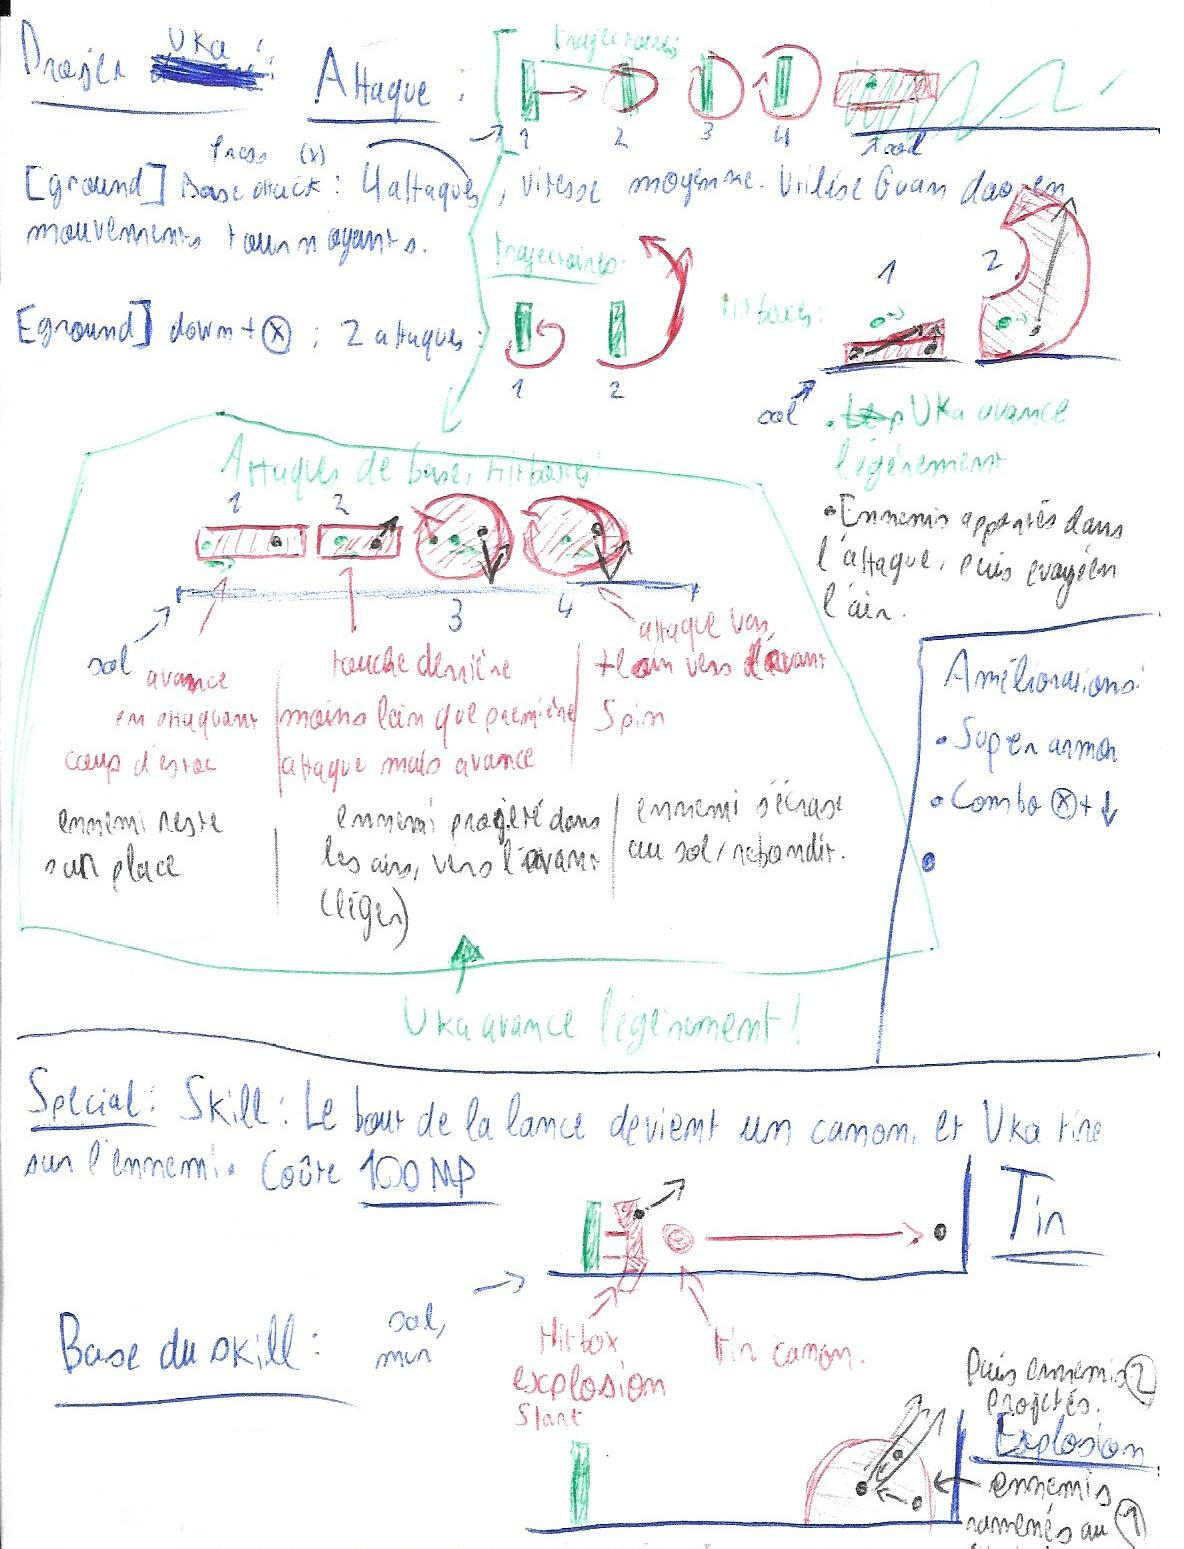 Projet Uka :
Attaque :
trajectoires
1 2 3 4
Press (x)
[ground] Base attack : 4 attaques, vitesse moyenne. Utilise Guan dao en
mouvements tournoyants.
trajectoires:
Hitboxes:
1 2
[ground] down + (X) ; 2 attaques :
1 2
sol
• Uka avance
légèrement
• Ennemis apportés dans
l'attaque, puis envoyé en
l'air.
Attaques de base, Hitboxes:
1 2
3 4
sol
avance
en attaquant
coup d'estoc
touche derrière
moins loin que première
attaque mais avance
attaque vas
+ loin vers l'avant
Spin
ennemi reste
sur place
ennemi projeté dans
les airs, vers l'avant
(léger)
ennemi s'écrase
au sol/rebondit.
Uka avance légèrement !
Améliorations:
• Super armor
• Combo (X) + ↓
•
Spécial : Skill : Le bout de la lance devient un canon, et Uka tire
sur l'ennemi. Coûte 100 MP
Tir
Base du skill :
sol,
mur
Hitbox
explosion
Start
tir canon.
Puis ennemis (2)
projetés.
Explosion
ennemis
ramenés au (1)